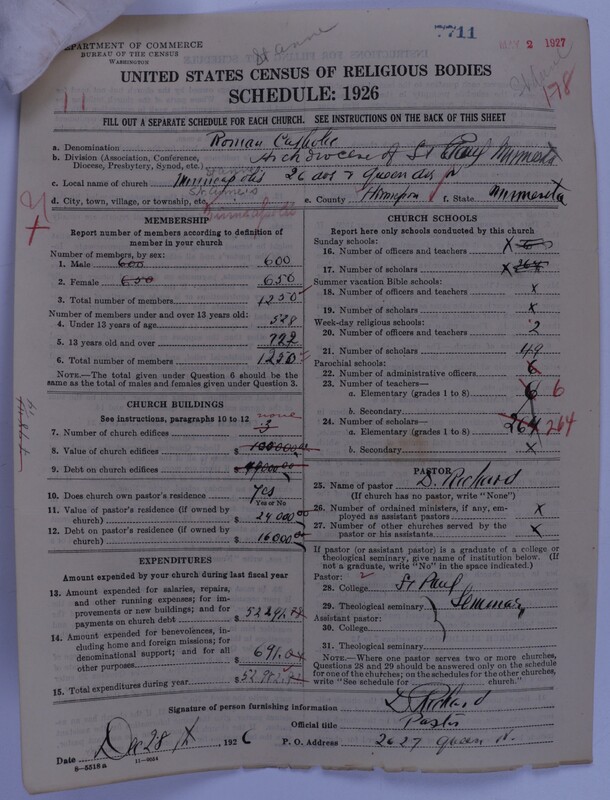 DEPARTMENT OF COMMERCE
BUREAU OF THE CENSUS
WASHINGTON
St Anne
7711
MAY 2 1927
UNITED STATES CENSUS OF RELIGIOUS BODIES
SCHEDULE: 1926
St Paul
178
11
FILL OUT A SEPARATE SCHEDULE FOR EACH CHURCH. SEE INSTRUCTIONS ON THE BACK OF THIS SHEET
a. Denomination Roman Catholic
b. Division (Association, Conference, Diocese, Presbytery, Synod, etc.) Archdiocese of St Paul Minnesota
c. Local name of church Minneapolis 26 ave & Queen ave N
d. City, town, village, or township, etc. Minneapolis
e. County Hennepin f. State Minnesota
MEMBERSHIP
Report number of members according to definition of member in your church
Number of members, by sex:
1. Male 600 600
2. Female 650 650
3. Total number of members 1250
Number of members under and over 13 years old:
4. Under 13 years of age 528
5. 13 years old and over 722
6. Total number of members 1250
NOTE.—The total given under Question 6 should be the same as the total of males and females given under Question 3.
CHURCH BUILDINGS
See instructions, paragraphs 10 to 12 none
7. Number of church edifices 3
8. Value of church edifices $ 100000.00
9. Debt on church edifices $ 49000.00
10. Does church own pastor's residence Yes
Yes or No
11. Value of pastor's residence (if owned by church) $ 24000.00
12. Debt on pastor's residence (if owned by church) $ 16000.00
EXPENDITURES
Amount expended by your church during last fiscal year
13. Amount expended for salaries, repairs, and other running expenses; for improvements or new buildings; and for payments on church debt $
14. Amount expended for benevolences, including home and foreign missions; for denominational support; and for all other purposes $
15. Total expenditures during year $
CHURCH SCHOOLS
Report here only schools conducted by this church
Sunday schools:
16. Number of officers and teachers X 6
17. Number of scholars X 264
Summer vacation Bible schools:
18. Number of officers and teachers X
19. Number of scholars X
Week-day religious schools:
20. Number of officers and teachers 2
21. Number of scholars 49
Parochial schools:
22. Number of administrative officers
23. Number of teachers—
a. Elementary (grades 1 to 8) 6 6
b. Secondary X
24. Number of scholars—
a. Elementary (grades 1 to 8) 264 264
b. Secondary X
PASTOR
25. Name of pastor D. Richard
(If church has no pastor, write "None")
26. Number of ordained ministers, if any, employed as assistant pastors X
27. Number of other churches served by the pastor or his assistants X
If pastor (or assistant pastor) is a graduate of a college or theological seminary, give name of institution below. (If not a graduate, write "No" in the space indicated.)
Pastor:
28. College St Paul
29. Theological seminary Seminary
Assistant pastor:
30. College
31. Theological seminary
NOTE.—Where one pastor serves two or more churches, Questions 28 and 29 should be answered only on the schedule for one of the churches; on the schedules for the other churches, write "See schedule for church."
Signature of person furnishing information D. Richard
Official title Pastor
Date Dec 28 1926 P. O. Address 2627 Queen N.
8—5518a
11—9054